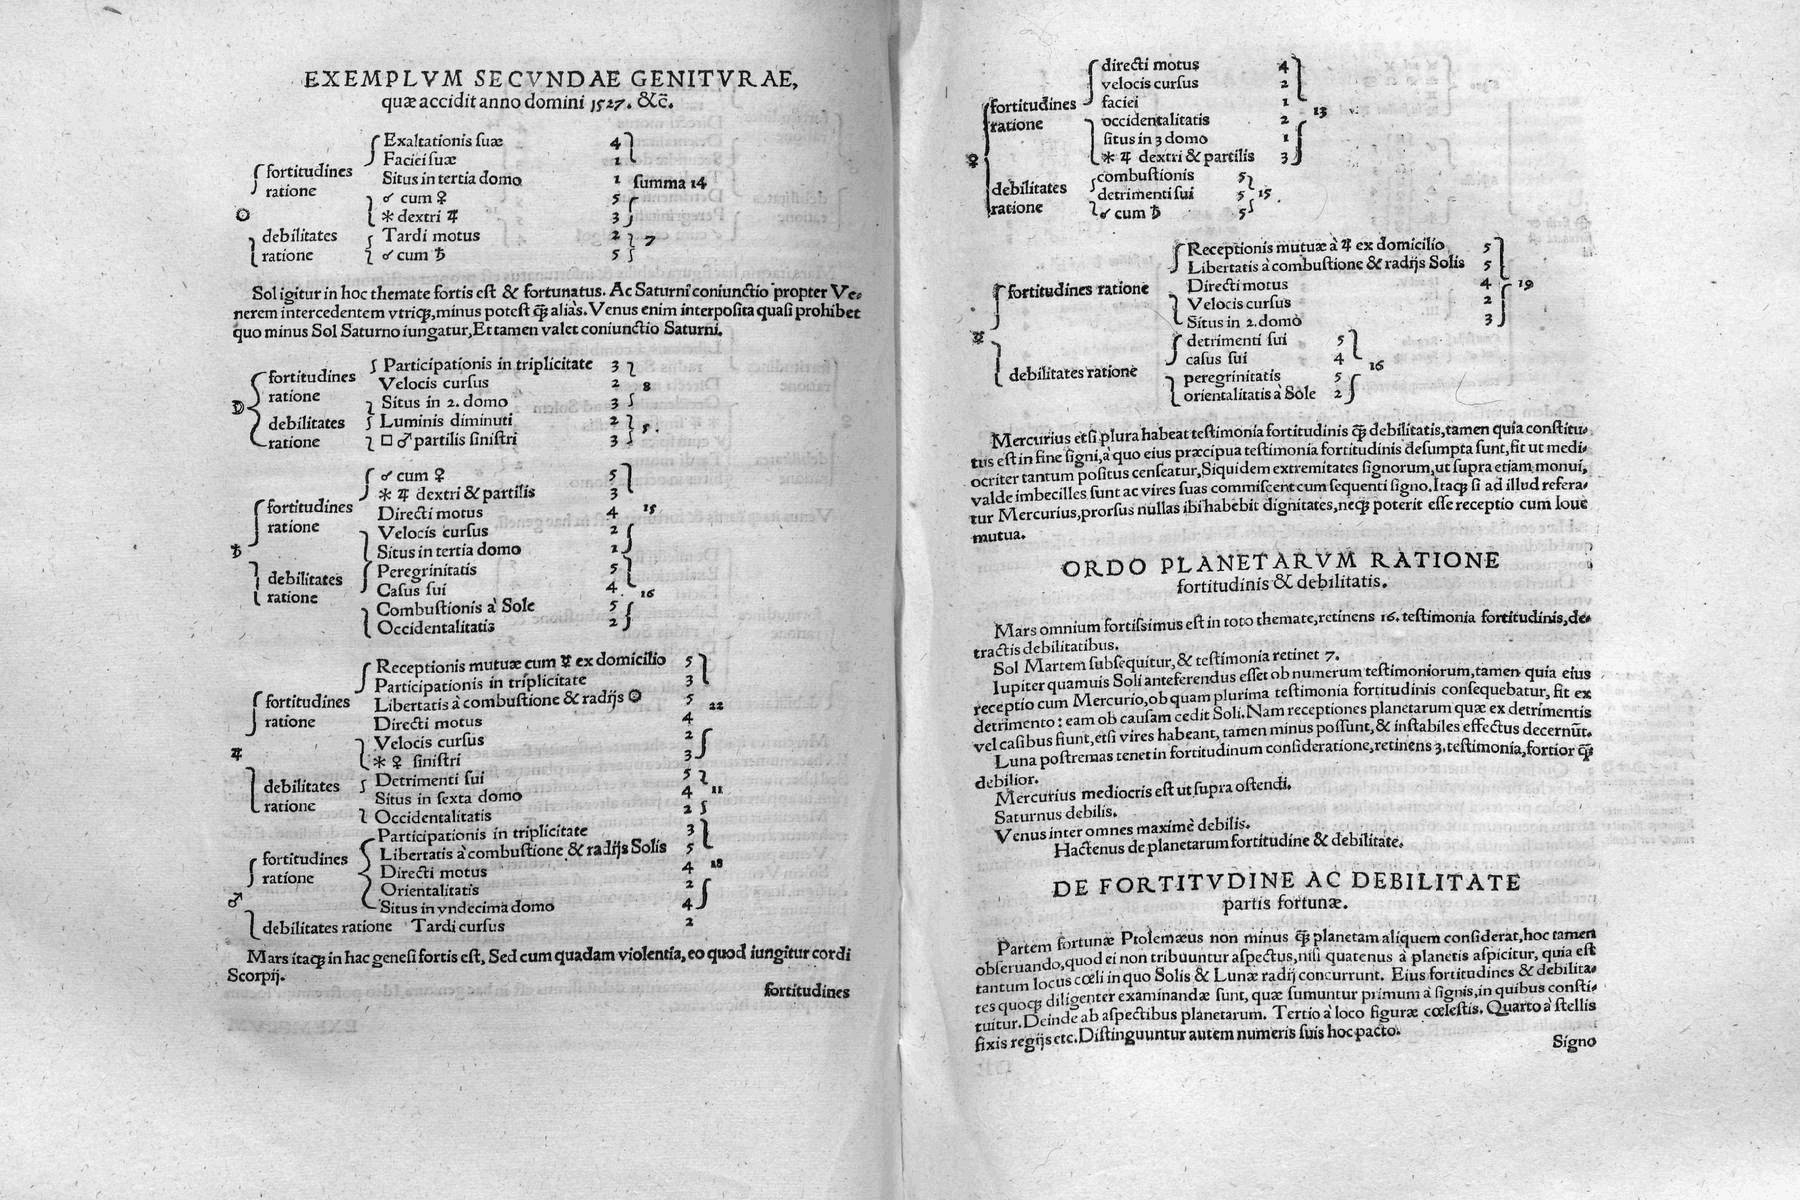 EXEMPLVM SECVNDAE GENITVRAE,
quæ accidit anno domini 1527. &c̄.
Exaltationis suæ 4
Faciei suæ 1
fortitudines
ratione
Situs in tertia domo 1 summa 14
☌ cum ♀ 5
⚹ dextri ♃ 3
☉
debilitates
ratione
Tardi motus 2
7
☌ cum ♄ 5
Sol igitur in hoc themate fortis est & fortunatus. Ac Saturni coniunctio propter Ve-
nerem intercedentem vtriq;, minus potest q̃ aliàs. Venus enim interposita quasi prohibet
quo minus Sol Saturno iungatur, Et tamen valet coniunctio Saturni.
☽
fortitudines
ratione
Participationis in triplicitate 3
Velocis cursus 2
8
Situs in 2. domo 3
debilitates
ratione
Luminis diminuti 2
5.
□ ♂ partilis sinistri 3
♄
fortitudines
ratione
☌ cum ♀ 5
⚹ ♃ dextri & partilis 3
Directi motus 4
15
Velocis cursus 2
Situs in tertia domo 1
debilitates
ratione
Peregrinitatis 5
Casus sui 4
16
Combustionis à Sole 5
Occidentalitatis 2
♃
fortitudines
ratione
Receptionis mutuæ cum ☿ ex domicilio 5
Participationis in triplicitate 3
Libertatis à combustione & radijs ☉ 5
22
Directi motus 4
Velocis cursus 2
⚹ ♀ sinistri 3
debilitates
ratione
Detrimenti sui 5
Situs in sexta domo 4
11
Occidentalitatis 2
♂
fortitudines
ratione
Participationis in triplicitate 3
Libertatis à combustione & radijs Solis 5
Directi motus 4
18
Orientalitatis 2
Situs in vndecima domo 4
debilitates ratione Tardi cursus 2
Mars itaq; in hac genesi fortis est, Sed cum quadam violentia, eo quod iungitur cordi
Scorpij.
fortitudines
♀
fortitudines
ratione
directi motus 4
velocis cursus 2
faciei 1
13
occidentalitatis 2
situs in 3 domo 1
⚹ ♃ dextri & partilis 3
debilitates
ratione
combustionis 5
detrimenti sui 5
15
☌ cum ♄ 5
☿
fortitudines ratione
Receptionis mutuæ à ♃ ex domicilio 5
Libertatis à combustione & radijs Solis 5
Directi motus 4
19
Velocis cursus 2
Situs in 2. domo 3
debilitates ratione
detrimenti sui 5
casus sui 4
16
peregrinitatis 5
orientalitatis à Sole 2
Mercurius etsi plura habeat testimonia fortitudinis q̃ debilitatis, tamen quia constitu-
tus est in fine signi, à quo eius præcipua testimonia fortitudinis desumpta sunt, fit ut medi-
ocriter tantum positus censeatur, Siquidem extremitates signorum, ut supra etiam monui,
valde imbecilles sunt ac vires suas commiscent cum sequenti signo. Itaq; si ad illud refera-
tur Mercurius, prorsus nullas ibi habebit dignitates, neq; poterit esse receptio cum Ioue
mutua.
ORDO PLANETARVM RATIONE
fortitudinis & debilitatis.
Mars omnium fortissimus est in toto themate, retinens 16. testimonia fortitudinis, de-
tractis debilitatibus.
Sol Martem subsequitur, & testimonia retinet 7.
Iupiter quamuis Soli anteferendus esset ob numerum testimoniorum, tamen quia eius
receptio cum Mercurio, ob quam plurima testimonia fortitudinis consequebatur, fit ex
detrimento: eam ob causam cedit Soli. Nam receptiones planetarum quæ ex detrimentis
vel casibus fiunt, etsi vires habeant, tamen minus possunt, & instabiles effectus decernūt.
Luna postremas tenet in fortitudinum consideratione, retinens 3. testimonia, fortior q̃
debilior.
Mercurius mediocris est ut supra ostendi.
Saturnus debilis.
Venus inter omnes maximè debilis.
Hactenus de planetarum fortitudine & debilitate.
DE FORTITVDINE AC DEBILITATE
partis fortunæ.
Partem fortunæ Ptolemæus non minus q̃ planetam aliquem considerat, hoc tamen
obseruando, quod ei non tribuuntur aspectus, nisi quatenus à planetis aspicitur, quia est
tantum locus cœli in quo Solis & Lunæ radij concurrunt. Eius fortitudines & debilita-
tes quoq; diligenter examinandæ sunt, quæ sumuntur primum à signis, in quibus consti-
tuitur. Deinde ab aspectibus planetarum. Tertio à loco figuræ cœlestis. Quarto à stellis
fixis regijs etc. Distinguuntur autem numeris suis hoc pacto.
Signo